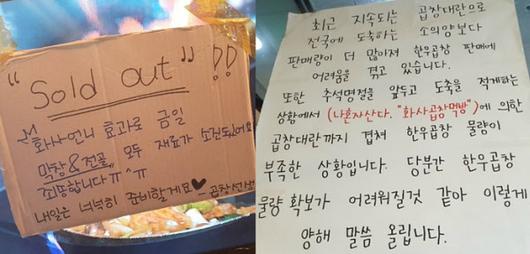 "Sold out" !!
☆화사언니 효과로 금일
막창&전골 모두 재료가 소진됐어요
죄땀합니다 ㅠ^ㅠ
내일은 넉넉히 준비할게요♥ 곱창선생
최근 지속되는 곱창대란으로
전국에 도축하는 소의양보다
판매량이 더 많아져 한우곱창 판매에
어려움을 겪고 있습니다.
또한 추석명절을 앞두고 도축을 적게하는
상황에서 (나혼자산다. "화사곱창먹방")에 의한
곱창대란까지 겹쳐 한우곱창 물량이
부족한 상황입니다. 당분간 한우곱창
물량 확보가 어려워질것 같아 이렇게
양해 말씀 올립니다.